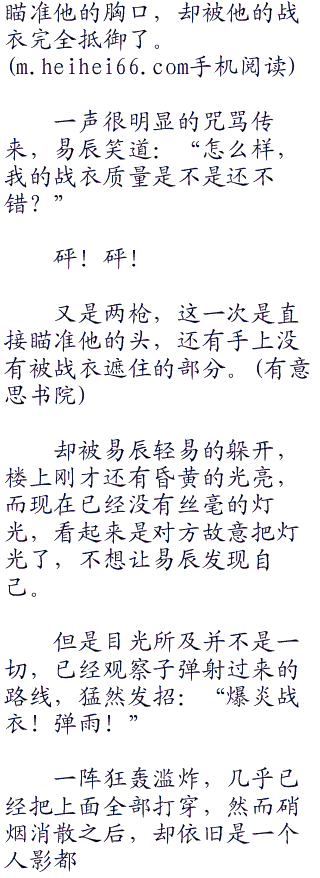 瞄准他的胸口，却被他的战
衣完全抵御了。
(m.heihei66.com手机阅读)
一声很明显的咒骂传
来，易辰笑道：“怎么样，
我的战衣质量是不是还不
错？”
砰！砰！
又是两枪，这一次是直
接瞄准他的头，还有手上没
有被战衣遮住的部分。(有意
思书院)
却被易辰轻易的躲开，
楼上刚才还有昏黄的光亮，
而现在已经没有丝毫的灯
光，看起来是对方故意把灯
光了，不想让易辰发现自
己。
但是目光所及并不是一
切，已经观察子弹射过来的
路线，猛然发招：“爆炎战
衣！弹雨！”
一阵狂轰滥炸，几乎已
经把上面全部打穿，然而硝
烟消散之后，却依旧是一个
人影都